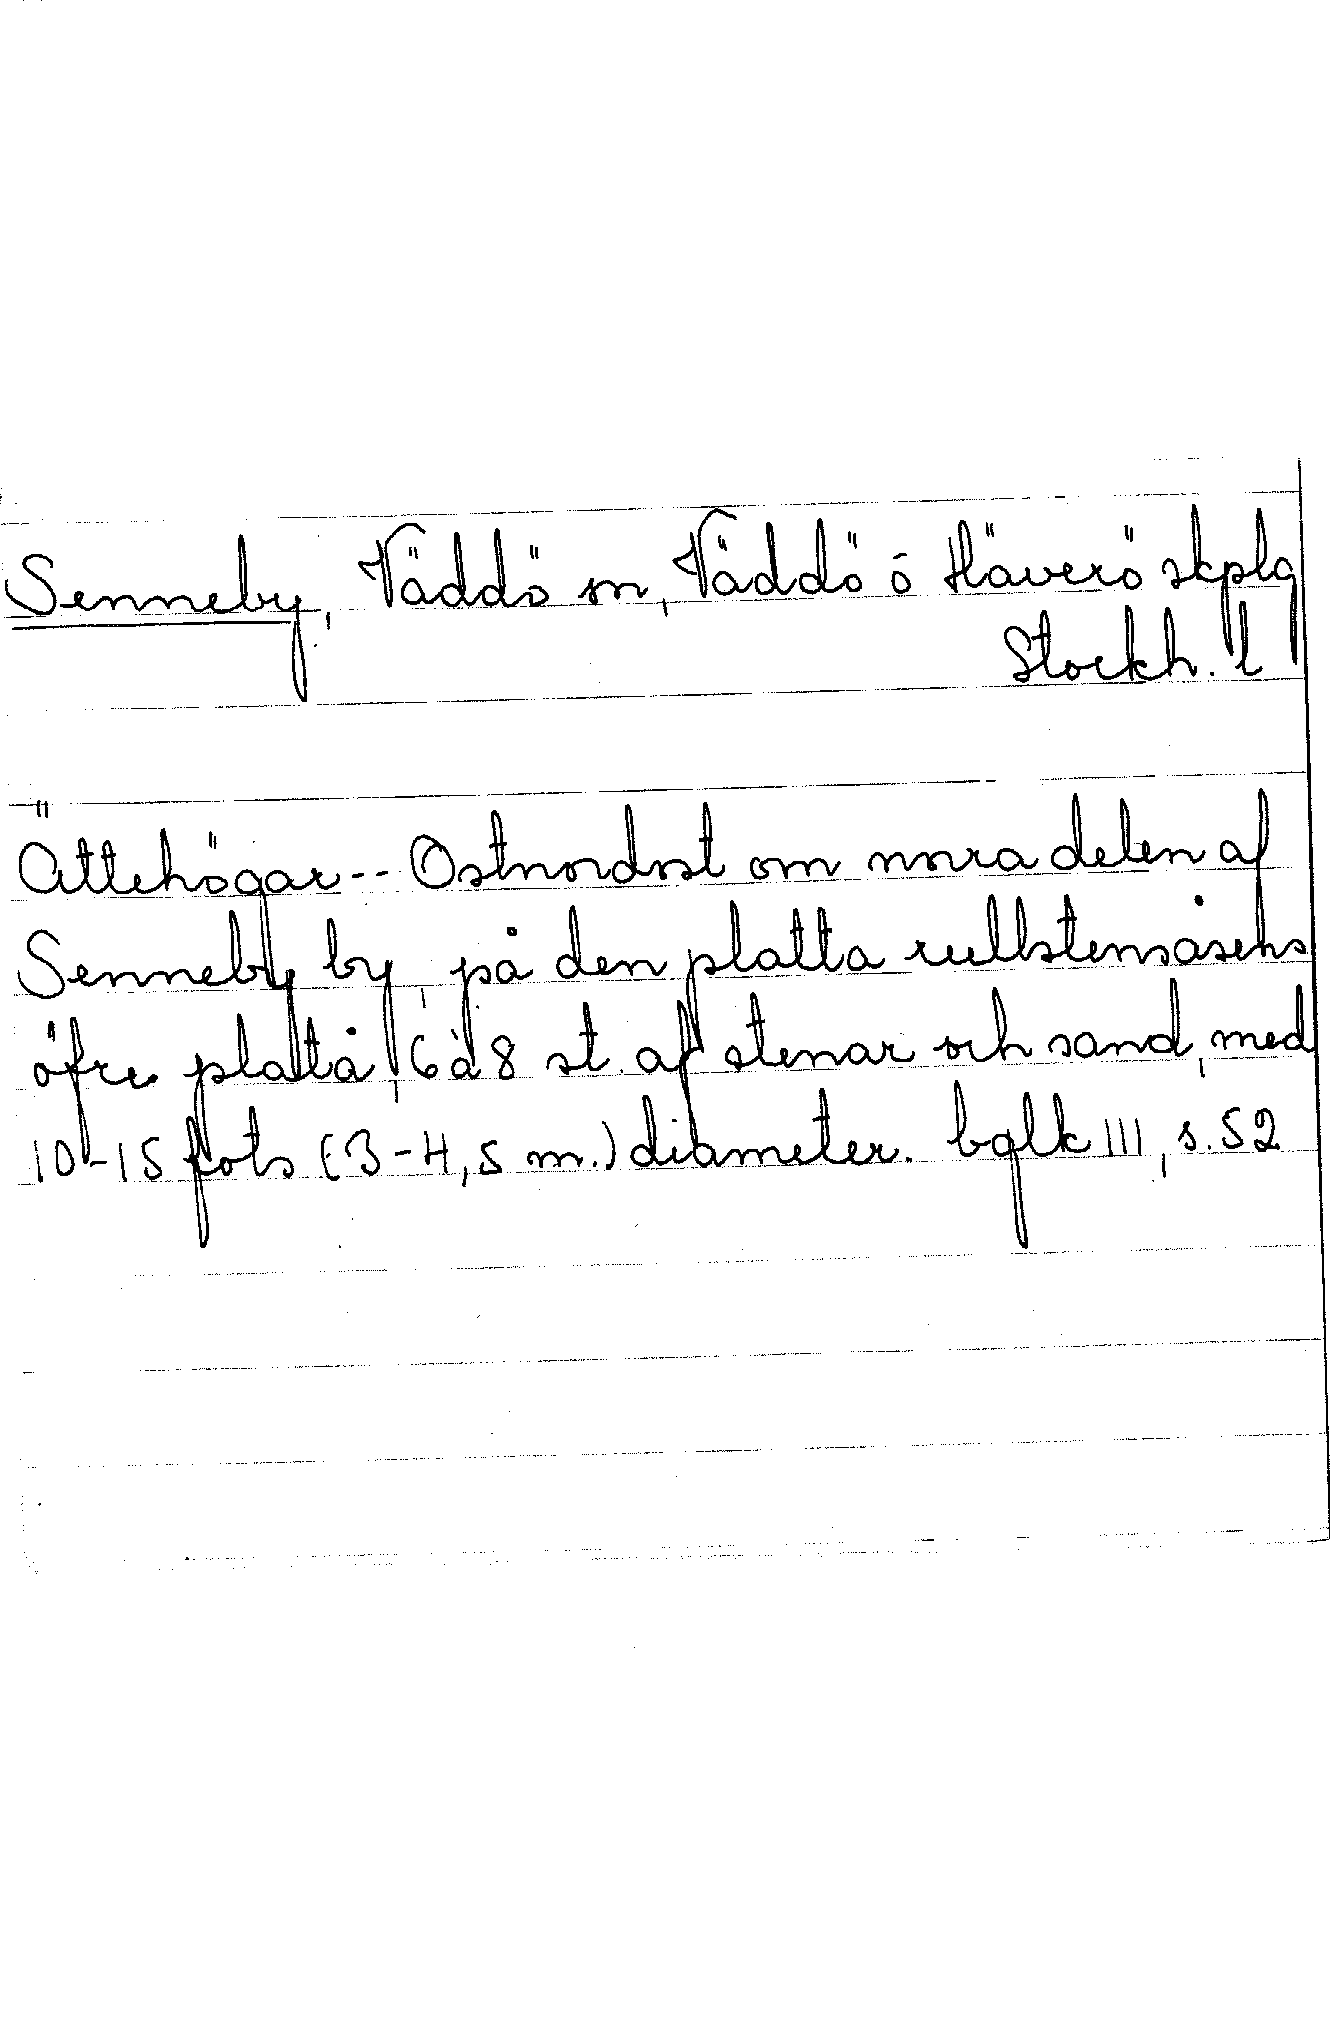 Senneby, Väddö sn, Väddö o Häverö skplg
Stockh. l
Ättehögar-- Ostnordost om norra delen af
Senneby by, på den platta rullstensåsens
öfre platå, 6 à 8 st. af stenar och sand, med
10-15 fots (3-4,5 m.) diameter. bglk III, s. 52